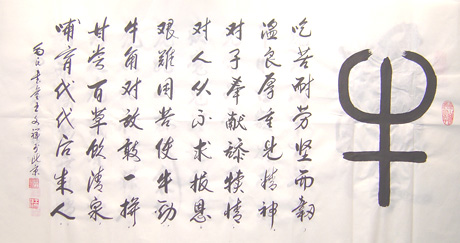 牛
吃苦耐劳坚而韧
温良厚重见精神
对子奉献舔犊情
对人从不求报恩
艰难困苦使牛劲
牛角对敌敢一拼
甘尝百草饮清泉
哺育代代后来人
王文祥于北京